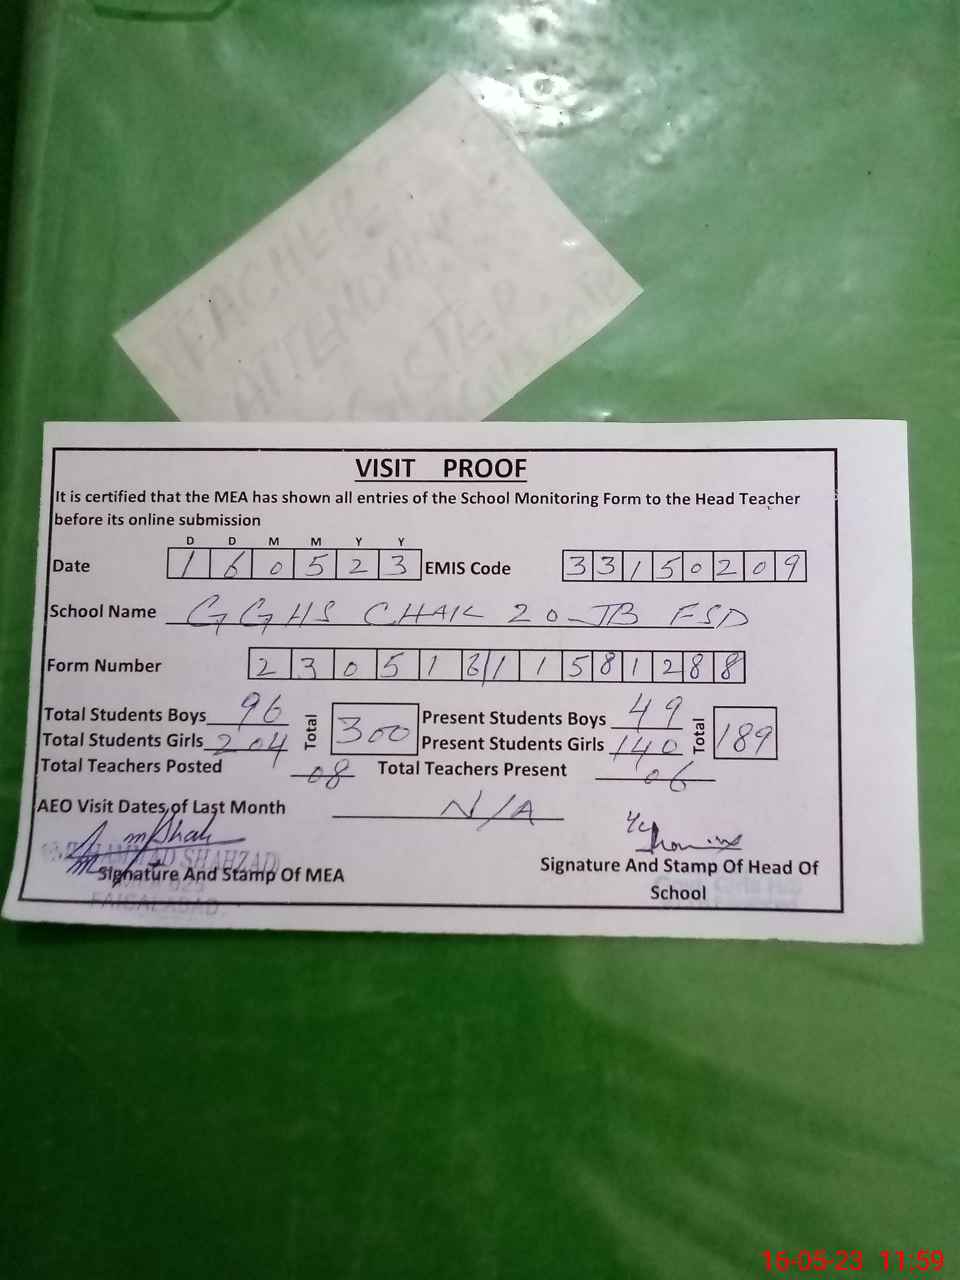 TEACHER
ATTENDANCE
VISIT PROOF
It is certified that the MEA has shown all entries of the School Monitoring Form to the Head Teacher
before its online submission
D D M M Y Y
Date 1 6 0 5 2 3 EMIS Code 3 3 1 5 0 2 0 9
School Name GGHS CHAK 20 JB FSD
Form Number 2 3 0 5 1 6 1 1 5 8 1 2 8 8
Total Students Boys 96 Total 300 Present Students Boys 49 Total 189
Total Students Girls 204 Present Students Girls 140
Total Teachers Posted 08 Total Teachers Present 06
AEO Visit Dates of Last Month N/A
SHAHZAD
Signature And Stamp Of MEA
Signature And Stamp Of Head Of
School
FAISALABAD
16-05-23 11:59